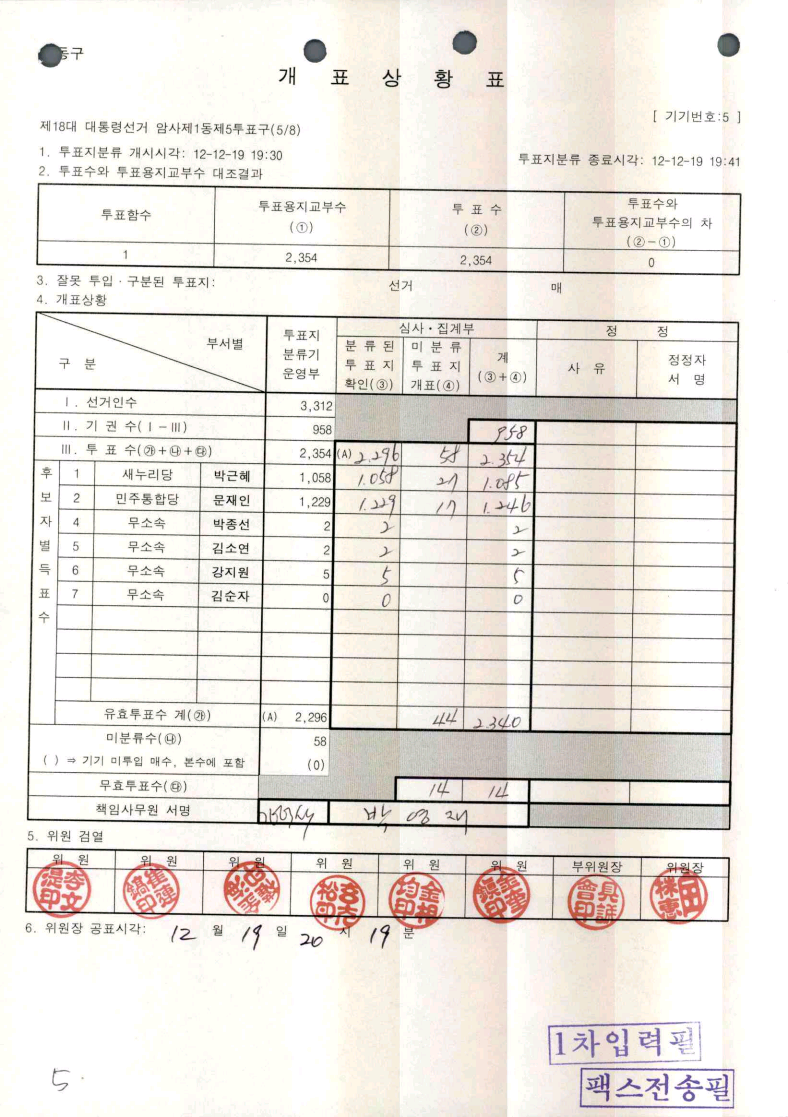 동구
개 표 상 황 표
[ 기기번호:5 ]
제18대 대통령선거 암사제1동제5투표구(5/8)
1. 투표지분류 개시시각: 12-12-19 19:30 투표지분류 종료시각: 12-12-19 19:41
2. 투표수와 투표용지교부수 대조결과
투표함수 투표용지교부수 (①) 투 표 수 (②) 투표수와 투표용지교부수의 차 (②-①)
1 2,354 2,354 0
3. 잘못 투입ㆍ구분된 투표지: 선거 매
4. 개표상황
구 분 부서별 투표지 분류기 운영부 심사ㆍ집계부 정 정
분 류 된 투 표 지 확인(③) 미 분 류 투 표 지 개표(④) 계 (③+④) 사 유 정정자 서 명
Ⅰ. 선거인수 3,312
Ⅱ. 기 권 수(Ⅰ-Ⅲ) 958 958
Ⅲ. 투 표 수(㉮+㉯+㉰) 2,354 (A) 2.296 58 2.354
후보자별득표수
1 새누리당 박근혜 1,058 1.058 27 1.085
2 민주통합당 문재인 1,229 1.229 17 1.246
4 무소속 박종선 2 2 2
5 무소속 김소연 2 2 2
6 무소속 강지원 5 5 5
7 무소속 김순자 0 0 0
유효투표수 계(㉮) (A) 2,296 44 2.340
미분류수(㉯) 58
( ) ⇒ 기기 미투입 매수, 본수에 포함 (0)
무효투표수(㉰) 14 14
책임사무원 서명 박 영 재
5. 위원 검열
위 원 위 원 위 원 위 원 위 원 위 원 부위원장 위원장
6. 위원장 공표시각: 12 월 19 일 20 시 19 분
1차입력필
5.
팩스전송필